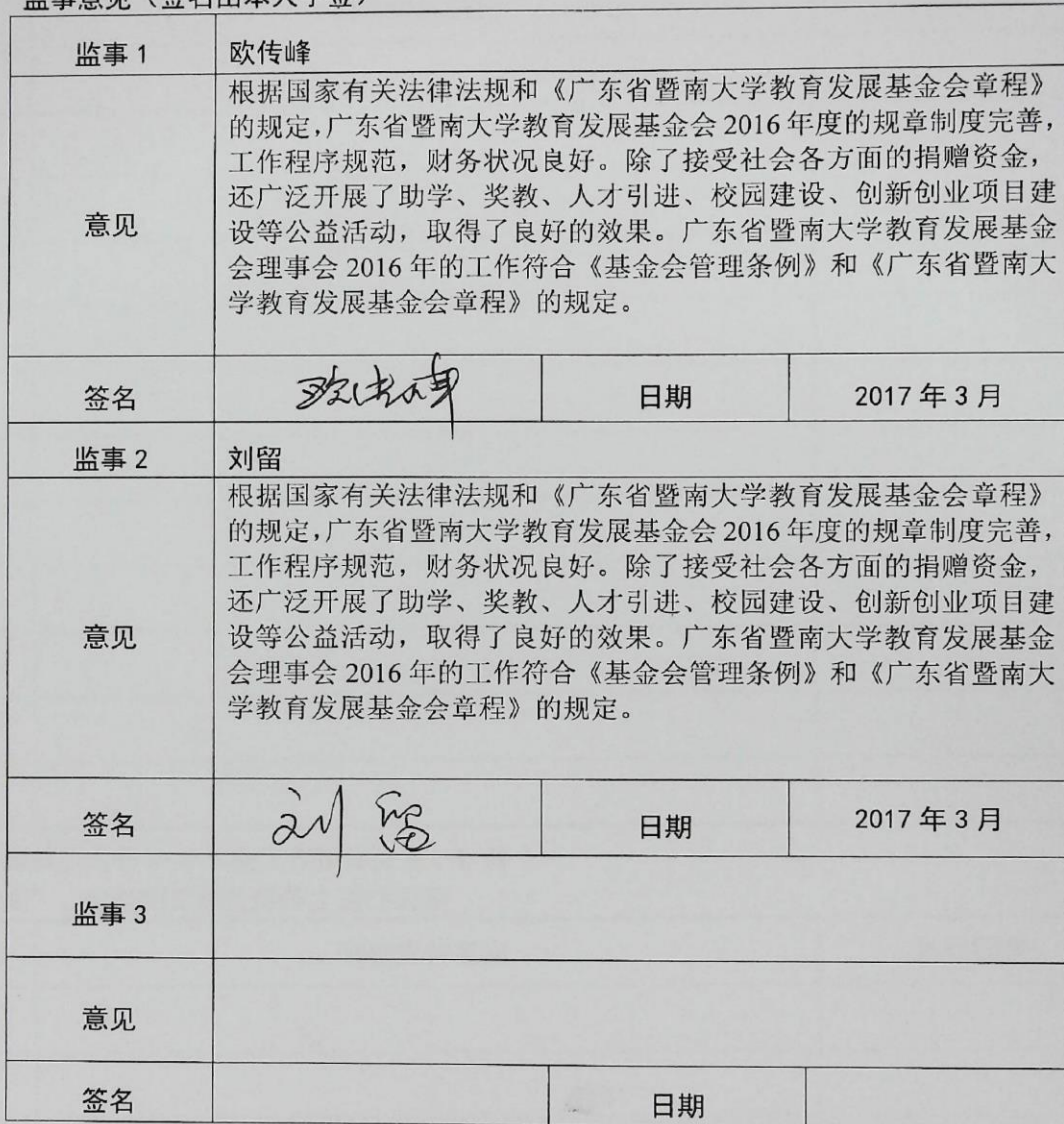 监事意见（签名由本人手签）
监事 1 欧传峰
根据国家有关法律法规和《广东省暨南大学教育发展基金会章程》
的规定，广东省暨南大学教育发展基金会 2016 年度的规章制度完善，
工作程序规范，财务状况良好。除了接受社会各方面的捐赠资金，
还广泛开展了助学、奖教、人才引进、校园建设、创新创业项目建
意见 设等公益活动，取得了良好的效果。广东省暨南大学教育发展基金
会理事会 2016 年的工作符合《基金会管理条例》和《广东省暨南大
学教育发展基金会章程》的规定。
签名 欧传峰 日期 2017 年 3 月
监事 2 刘留
根据国家有关法律法规和《广东省暨南大学教育发展基金会章程》
的规定，广东省暨南大学教育发展基金会 2016 年度的规章制度完善，
工作程序规范，财务状况良好。除了接受社会各方面的捐赠资金，
还广泛开展了助学、奖教、人才引进、校园建设、创新创业项目建
意见 设等公益活动，取得了良好的效果。广东省暨南大学教育发展基金
会理事会 2016 年的工作符合《基金会管理条例》和《广东省暨南大
学教育发展基金会章程》的规定。
签名 刘留 日期 2017 年 3 月
监事 3
意见
签名 日期